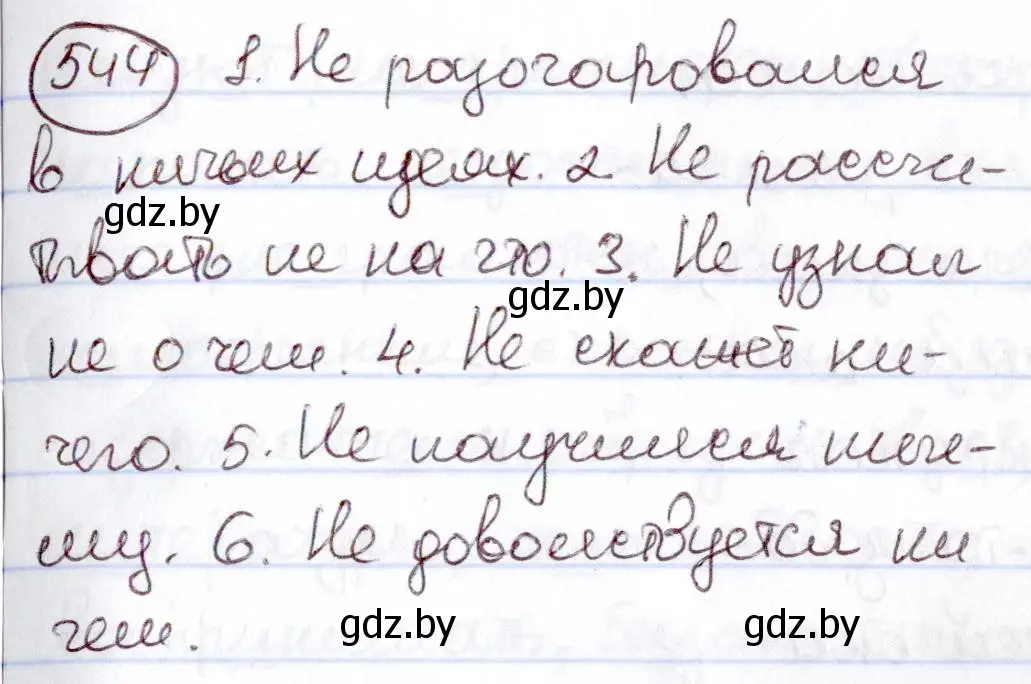 544 1. Не разочаровался
в ничьих идеях. 2. Не рассчи-
тывать не на что. 3. Не узнал
не о чем. 4. Не скажет ни-
чего. 5. Не научился
му. 6. Не довольствуется ни
чем.
gdz.by
gdz.by
gdz.by
gdz.by